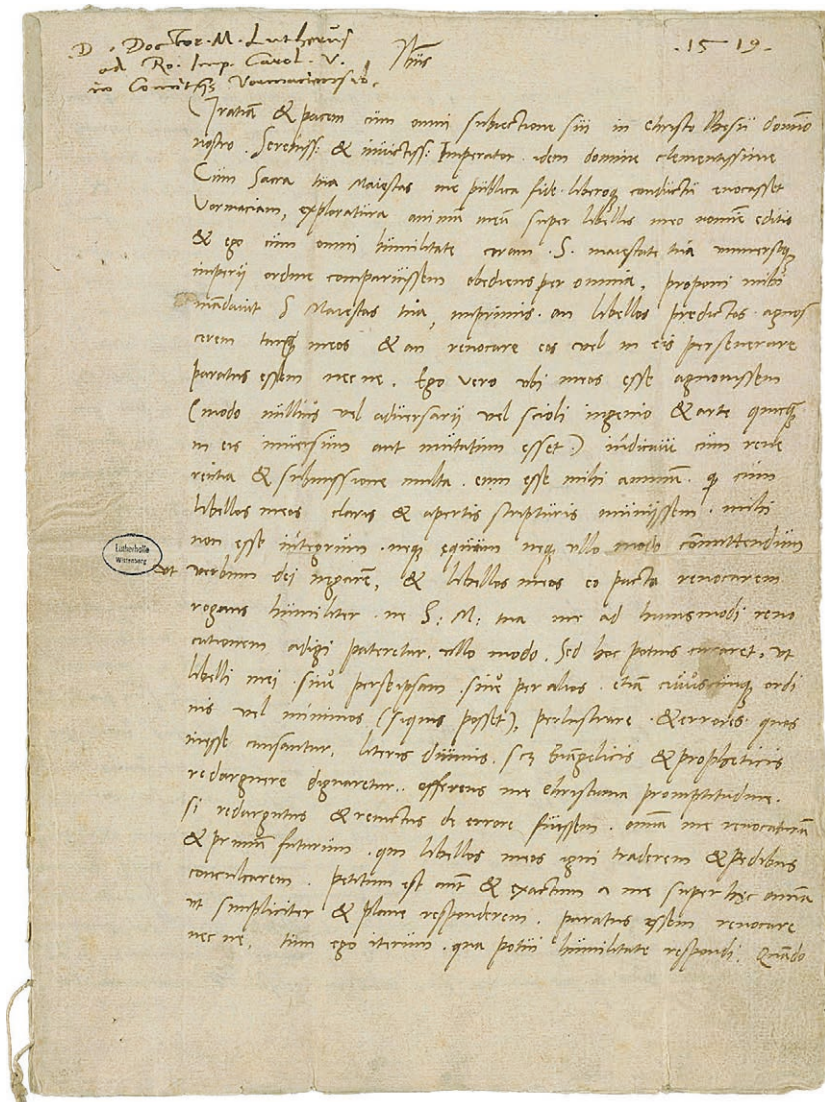 D. Doctor. M. Lutherus
ad Ro. Imp. Carol. V.
in Comitijs Vormaciensib.
Ihus
.1519.
Gratiam & pacem cum omni subiectione sui in Christo Ihesu domino
nostro. Sereniss: & inuictiss: Imperator. idem domine clementissime
Cum Sacra tua Maiestas me publica fide liberoq conductu euocasset
Vormaciam, exploratura animum meu super libellis meo nomine editis
& ego cum omni humilitate coram. S. maiestate tua vniuersoq
imperij ordine comparuissem obediens per omnia, proponi mihi
mandauit S Maiestas tua, inprimis. an libellos predictos agnos
cerem tanq meos & an reuocare eos vel in eis perseuerare
paratus essem nec ne. Ego vero vbi meos esse agnouissem
(modo nullius vel aduersarij vel scioli ingenio & arte quicq
in eis inuersum aut mutatum esset) indicaui cum reue
rentia & submissione multa. eum esse mihi animum. q cum
libellos meos claris & apertis scripturis muniissem. mihi
non esse integrum. neq equum neq vllo modo committendum
vt verbum dei negarem, & libellos meos eo pacto reuocarem
rogans humiliter. ne S: M: tua me ad huiusmodi reuo
cationem adigi pateretur. vllo modo. Sed hoc potius curaret, vt
libelli mei siue per seipsam. siue per alios. etia cuiuscunq ordi
nis vel minimos (siquis posset), perlustrare & errores quos
inesse causantur, literis diuinis. Euangelicis & propheticis
redarguere dignaretur. offerens me Christiana promptitudine.
si redargutus & reuictus de errore fuissem. omnia me reuocaturu
& primum futurum. qui libellos meos igni traderem & pedibus
conculcarem. Petitum est aut & exactum a me super hec omnia
vt simpliciter & plane responderem. paratus essem reuocare
nec ne. tum ego iterum. qua potui humilitate respondi. Quando
Lutherhalle
Wittenberg